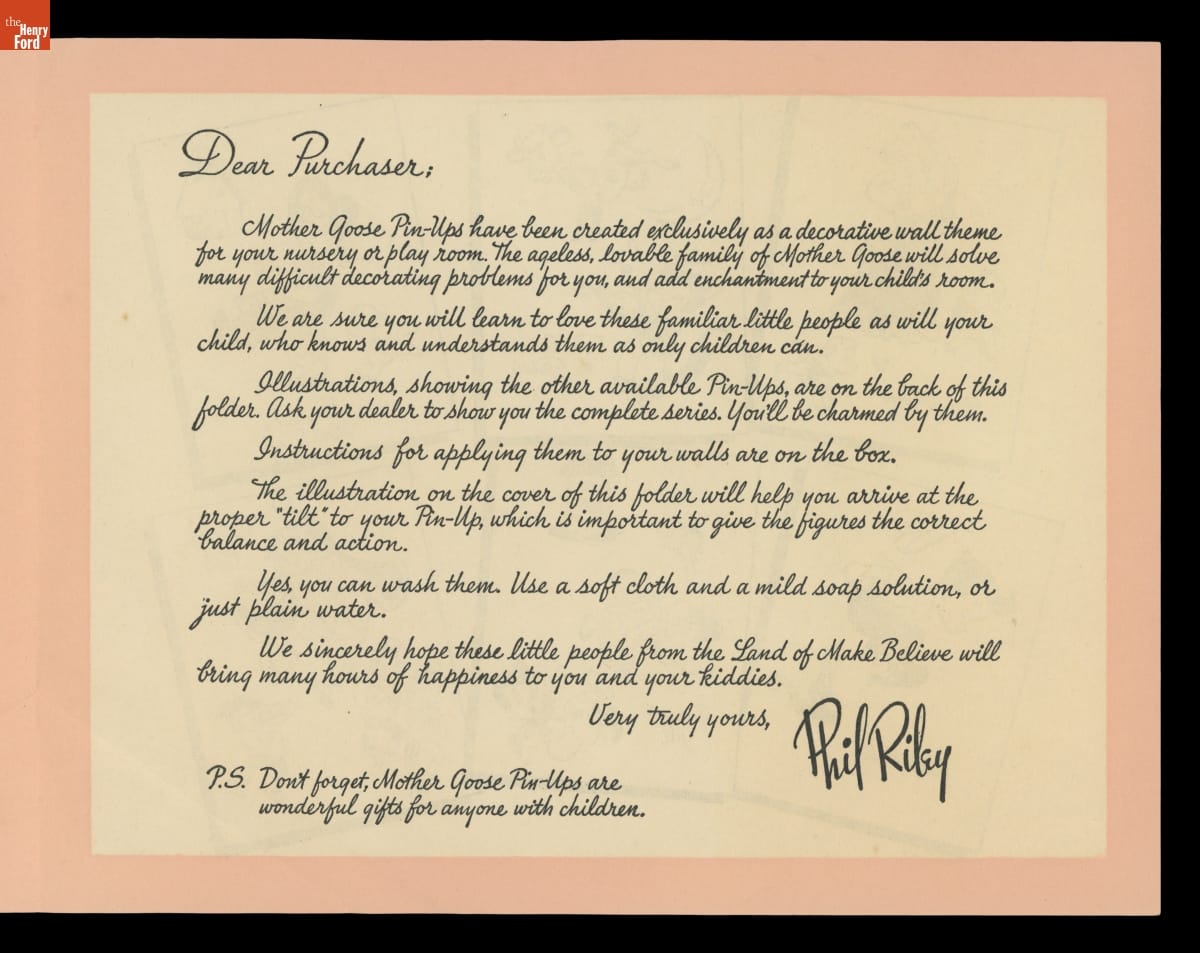 the
Henry
Ford
Dear Purchaser;
Mother Goose Pin-Ups have been created exclusively as a decorative wall theme
for your nursery or play room. The ageless, lovable family of Mother Goose will solve
many difficult decorating problems for you, and add enchantment to your child's room.
We are sure you will learn to love these familiar little people as will your
child, who knows and understands them as only children can.
Illustrations, showing the other available Pin-Ups, are on the back of this
folder. Ask your dealer to show you the complete series. You'll be charmed by them.
Instructions for applying them to your walls are on the box.
The illustration on the cover of this folder will help you arrive at the
proper "tilt" to your Pin-Up, which is important to give the figures the correct
balance and action.
Yes, you can wash them. Use a soft cloth and a mild soap solution, or
just plain water.
We sincerely hope these little people from the Land of Make Believe will
bring many hours of happiness to you and your kiddies.
Very truly yours,
Phil Riley
P.S. Don't forget, Mother Goose Pin-Ups are
wonderful gifts for anyone with children.